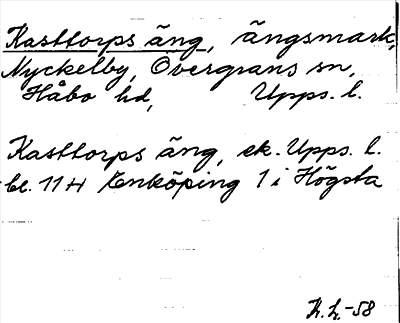 Kasttorps äng, ängsmark,
Nyckelby, Övergrans sn,
Håbo hd, Upps. l.
Kasttorps äng, ek. Upps. l.
bl. 11 H Enköping 1 i Högsta